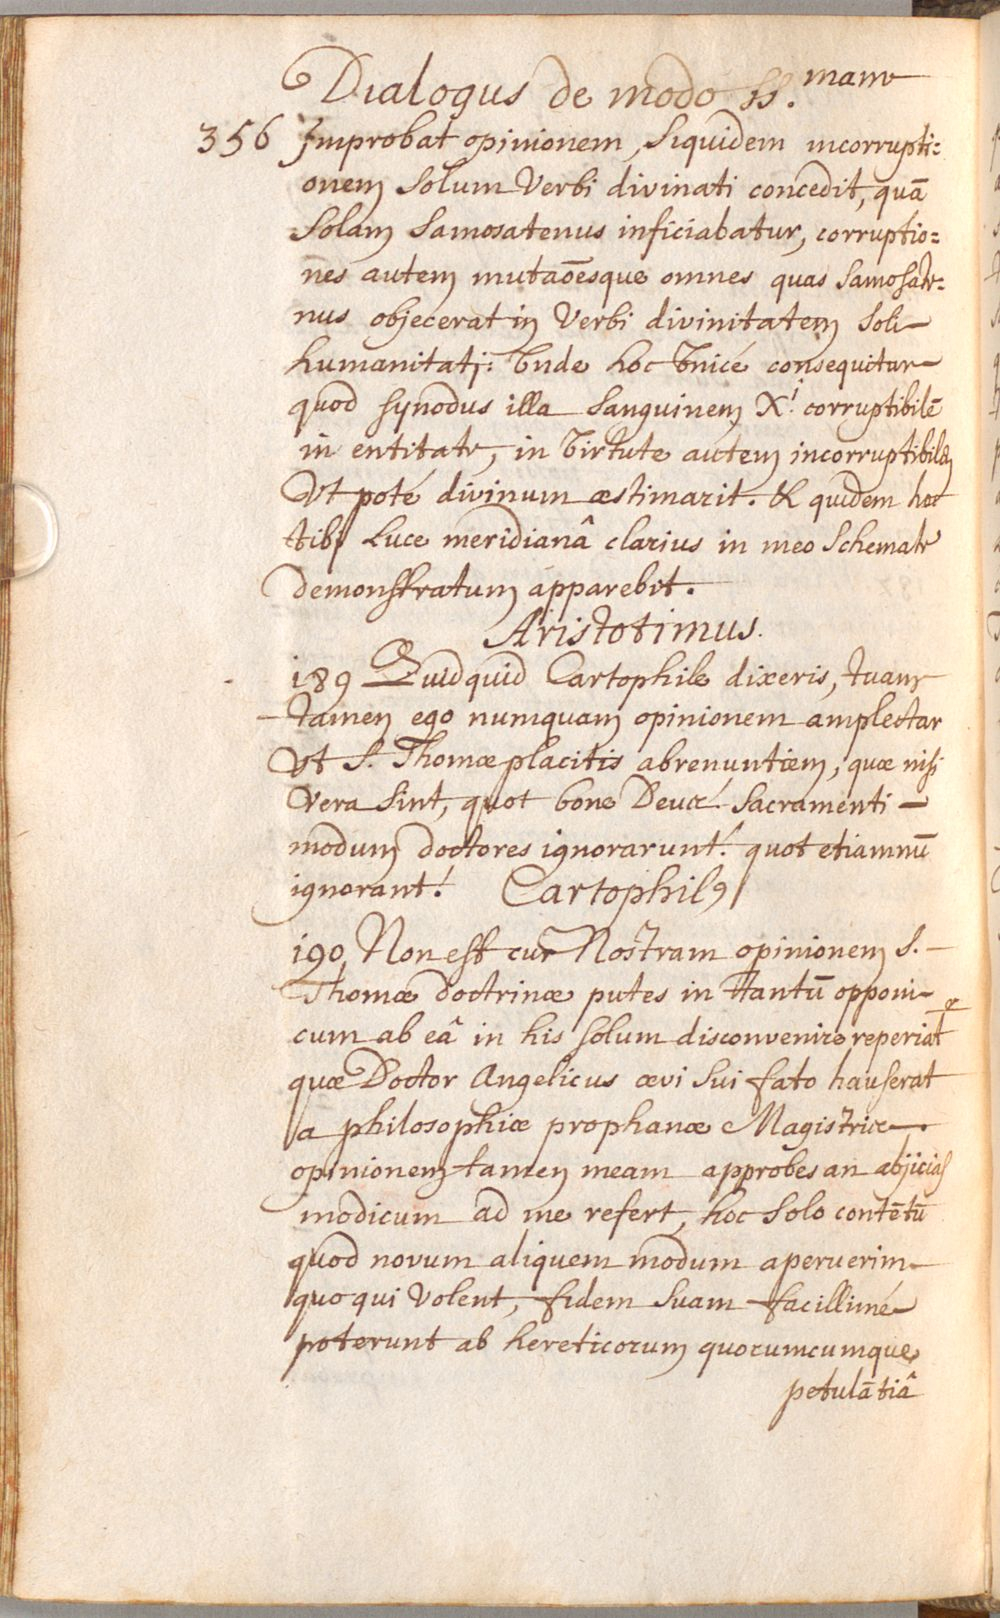 Dialogus de modo SS. mane
356 Improbat opinionem, Siquidem incorrupti=
onem solum Verbi divinati concedit, quā
Solam Samosatenus inficiabatur, corruptio=
nes autem mutaōesque omnes quas Samosate=
nus objecerat in Verbi divinitatem Soli
humanitati: Unde hoc Unicé consequitur
quod synodus illa Sanguinem X.i corruptibilē
in entitate, in Virtute autem incorruptibilem
Vt poté divinum æstimarit. & quidem hoc
tibi Luce meridianâ clarius in meo Schemate
demonstratum apparebit.
Aristotimus.
189 Quidquid Cartophile dixeris, tuam
tamen ego numquam opinionem amplectar
Vt S. Thomæ placitis abrenuntiem, quæ nisi
Vera Sint, quot bone Deus Sacramenti
modum doctores ignorarunt! quot etiamnū
ignorant! Cartophil9
190 Non est cur Nostram opinionem S.
Thomæ doctrinæ putes in tantū opponi
cum ab eâ in his solum disconvenire reperiat
quæ Doctor Angelicus ævi Sui fato hauserat
a philosophiæ prophanæ Magistrice
opinionem tamen meam approbes an abjicias
modicum ad me refert, hoc Solo contētū
quod novum aliquem modum aperuerim
quo qui Volent, fidem Suam facillimé
poterunt ab hereticorum quorumcumque
petulātiâ